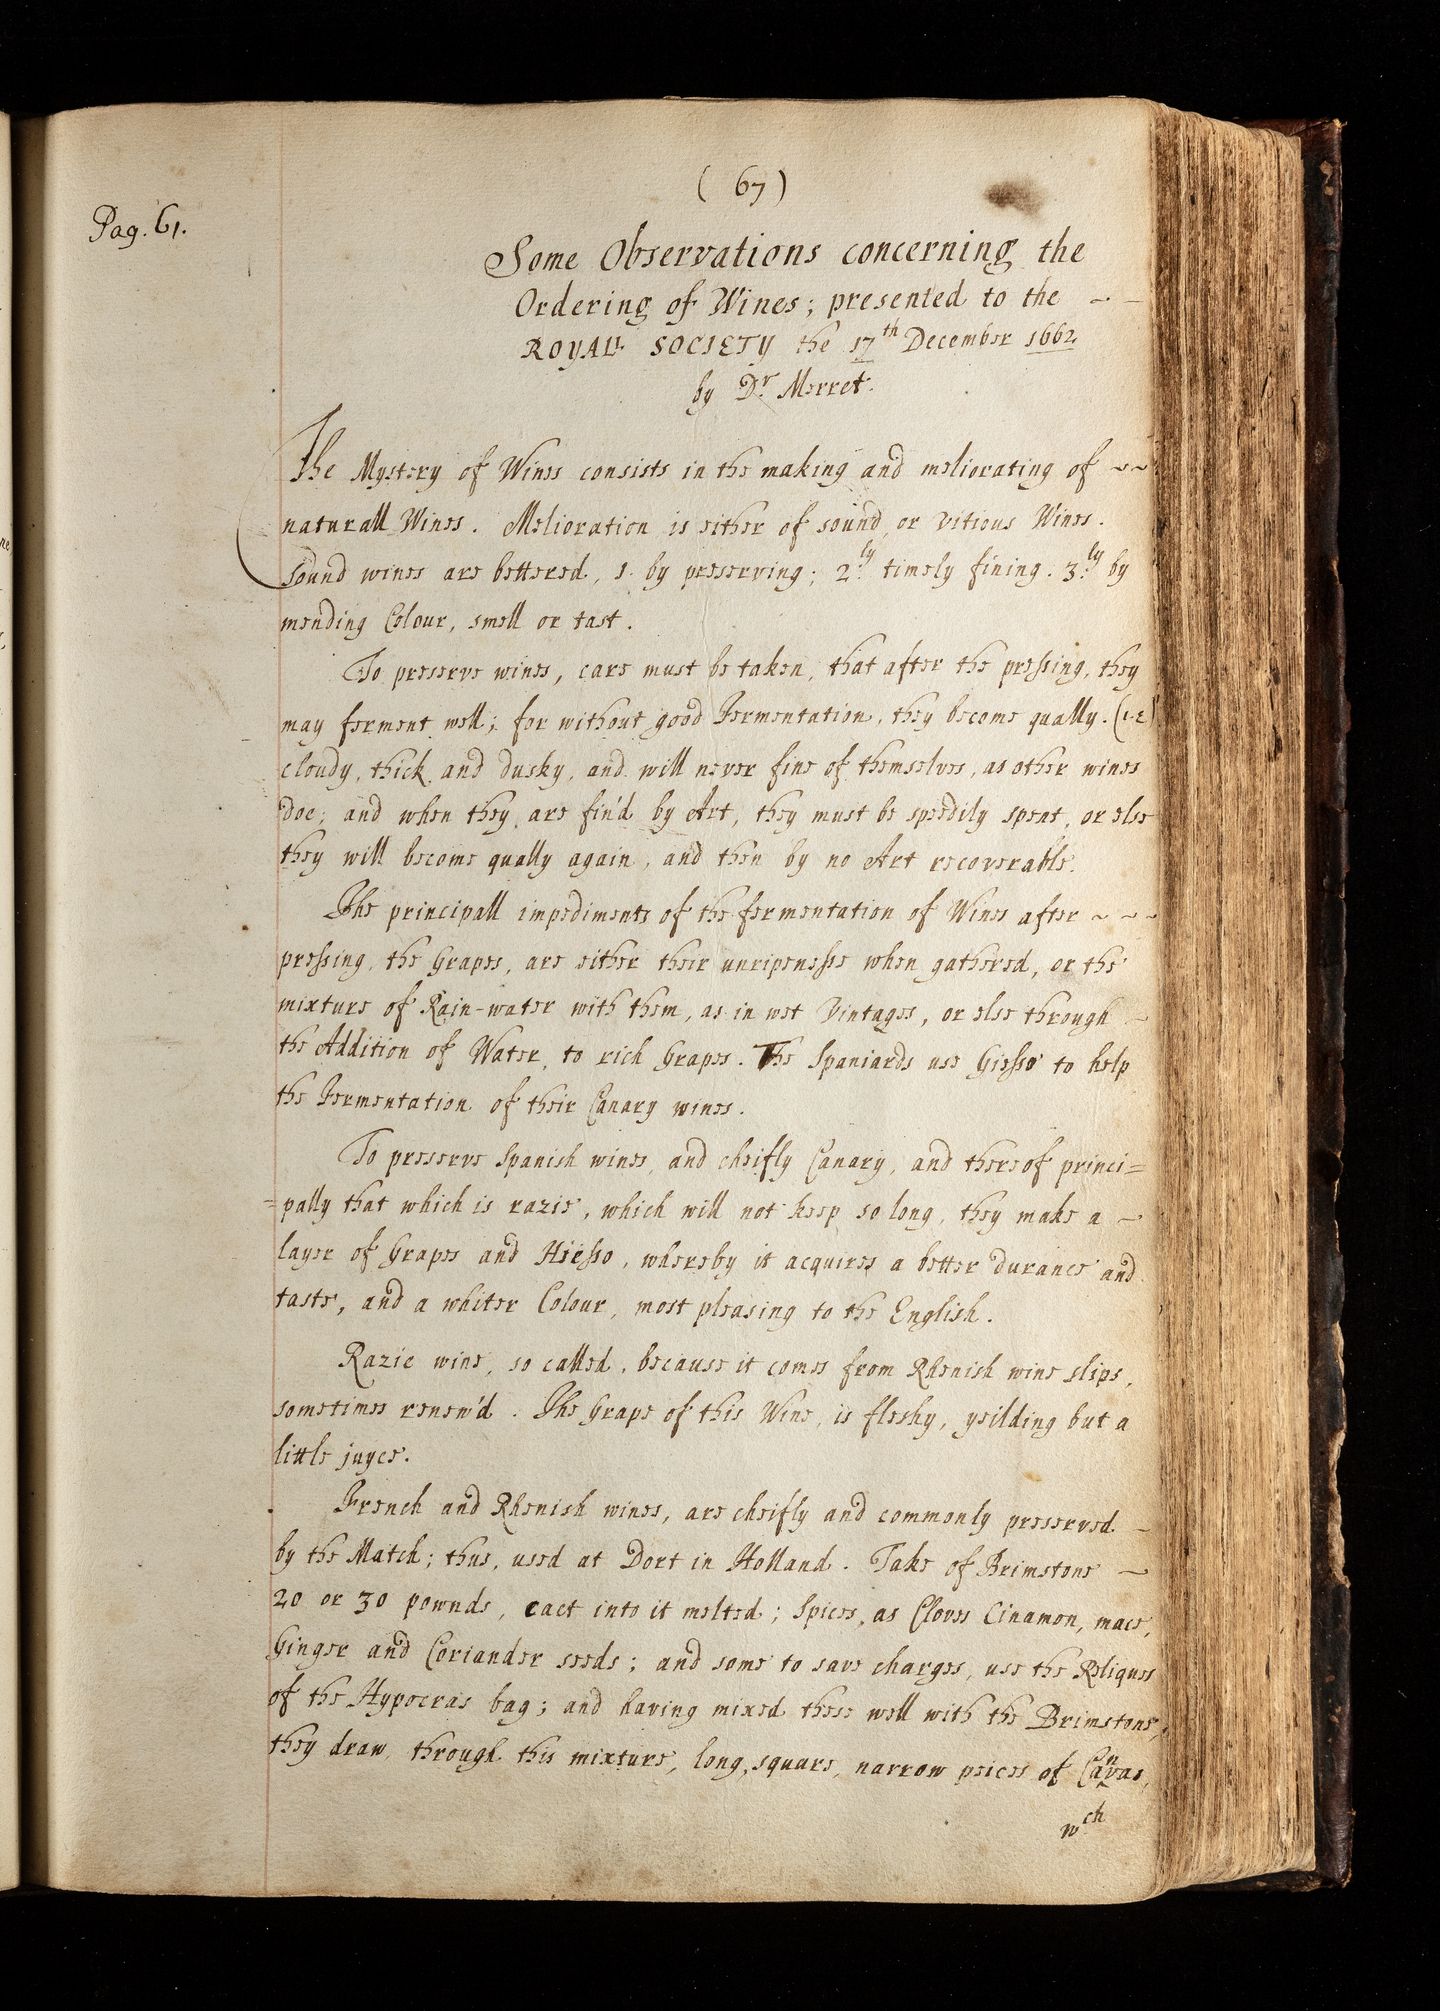 ( 67 )
Pag. 61.
Some Observations concerning the
Ordering of Wines; presented to the ~ ~
ROYALL SOCIETY the 17th December 1662.
by Dr Merret.
The Mystery of Wines consists in the making and meliorating of ~~
naturall Wines. Melioration is either of sound, or vitious Wines.
Sound wines are bettered, 1. by preserving; 2.ly timely fining. 3.ly by
mending Colour, smell or tast.
To preserve wines, care must be taken, that after the pressing, they
may ferment well; for without good Fermentation, they become qually. (i.e)
cloudy, thick and dusky, and will never fine of themselves, as other wines
doe; and when they are fin'd by Art, they must be speedily spent, or else
they will become qually again, and then by no Art recoverable.
The principall impediments of the fermentation of Wines after ~ ~ ~
pressing the Grapes, are either their unripenesse when gathered, or the
mixture of Rain-water with them, as in wet Vintages, or else through ~
the Addition of Water, to rich Grapes. The Spaniards use Giesso to help
the Fermentation of their Canary wines.
To preserve Spanish wines, and cheifly Canary, and thereof princi=
=pally that which is razie, which will not keep so long, they make a ~
layer of Grapes and Hiesso, whereby it acquires a better durance and
taste, and a whiter Colour, most pleasing to the English.
Razie wine, so called, because it comes from Rhenish wine slips,
sometimes renew'd. The Grape of this Wine, is fleshy, yeilding but a
little juyce.
French and Rhenish wines, are cheifly and commonly preserved ~
by the Match; thus, used at Dort in Holland. Take of Brimstone ~
20 or 30 pownds, cast into it melted; Spices, as Cloves Cinamon, mace,
Ginger and Coriander seeds; and some to save charges, use the Reliques
of the Hypocras bag; and having mixed these well with the Brimstone,
they draw through this mixture, long, square, narrow peices of Canvas,
wch